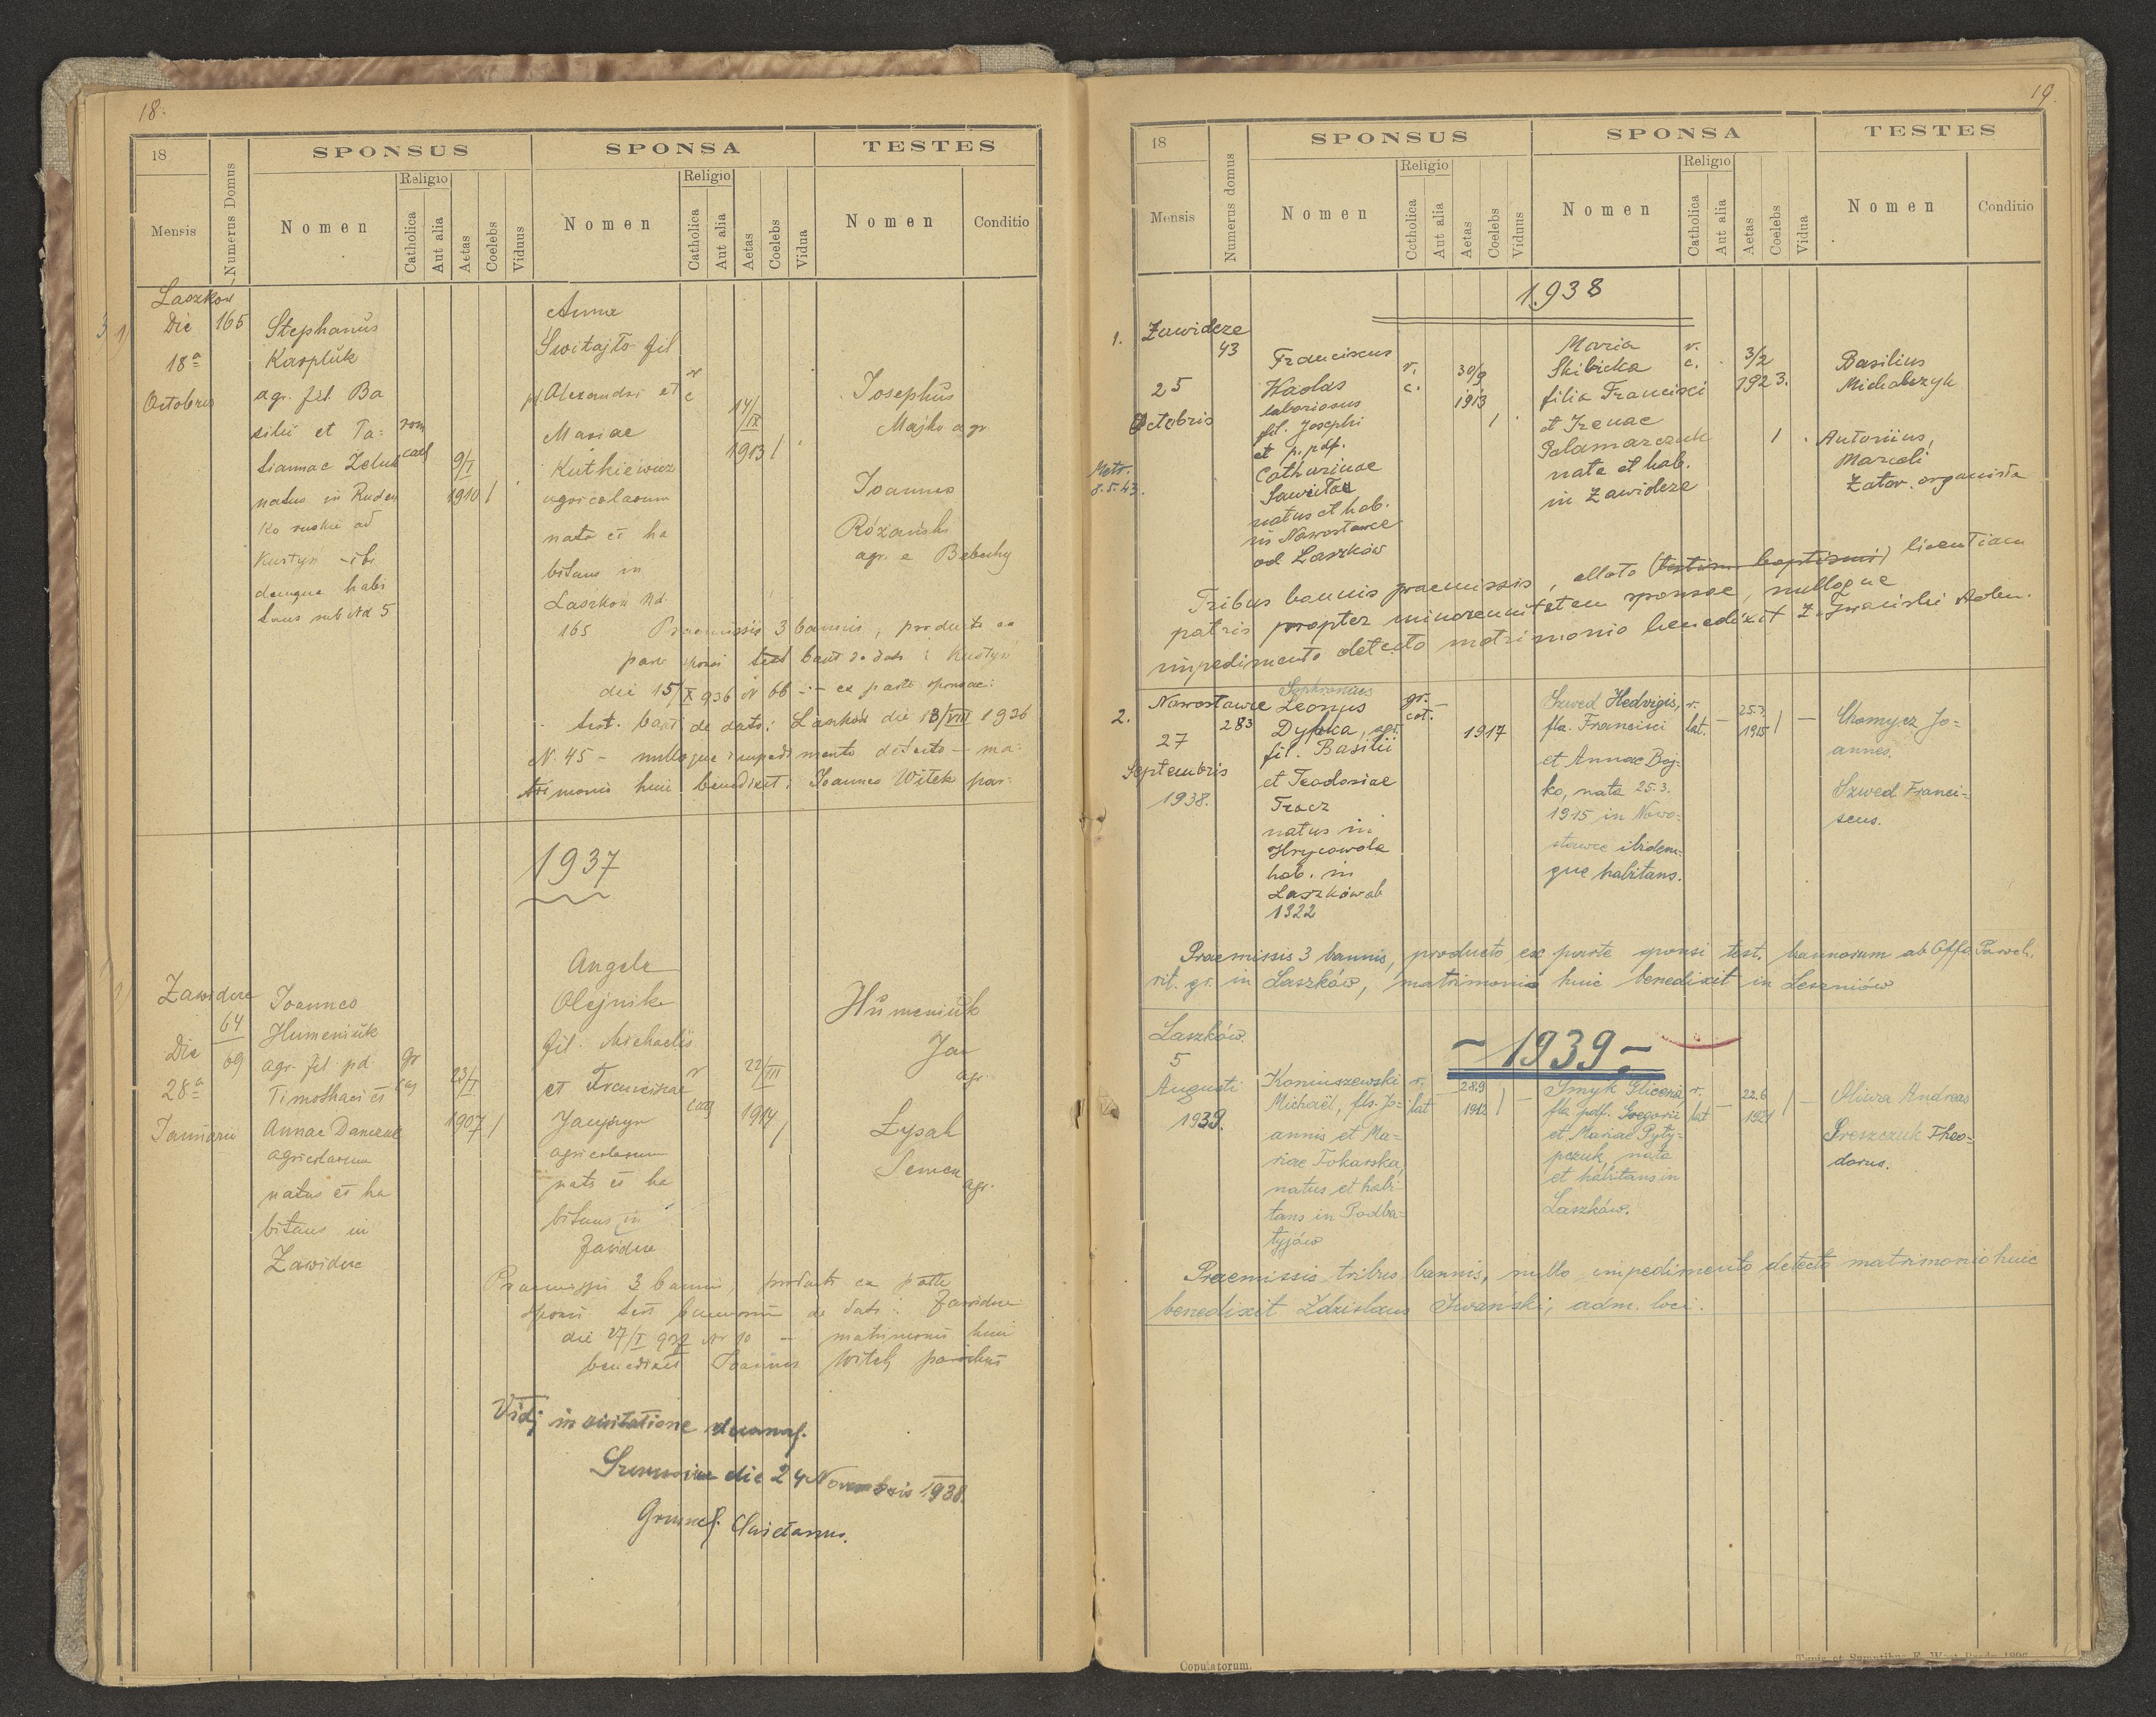 18.
18
SPONSUS
SPONSA
TESTES
Mensis
Numerus Domus
Nomen
Religio
Catholica
Aut alia
Aetas
Coelebs
Viduus
Nomen
Religio
Catholica
Aut alia
Aetas
Coelebs
Vidua
Nomen
Conditio
Laszków
Die 165
18a
Octobris
Stephanus
Karpluk
agr. fil. Ba
silii et Ta=
tiannae
natus in
ad
Kustyń - ibi
demque habi
tans sub Nd 5
rom
cat
9/I
1910 /
Anna
Switajło fil
Alexandri et
Mariae
Kutkiewicz
agricolarum
nata et ha
bitans in
Laszków Nd.
165
r
c
14/IX
1913 /
Josephus
Majko agr
Joannes
Różański
agr. e
Praemissis 3 bannis, producto ex
parte sponsi test bant de dato : Kustyń
die 15/X 936 N 66 -:- ex parte sponsae:
test. bant de dato: Laszków die 18/VIII 1936
N. 45 - nulloque impedimento detecto - ma=
trimonio huic benedixit: Joannes Witek par:
1937
1)
Zawidcze
64
69
Die
28a
Januarii
Joannes
Humeniuk
agr. fil. pd.
Timothaei et
Annae
agricolarum
natus et ha
bitans in
Zawidcze
gr
cat
23/I
1907 /
Angela
Olejnik
fil. Michaelis
et Franciscae
agricolarum
nata et ha
bitans in
Zawidcze
r
cat
22/III
1914 /
Humeniuk
Jan
agr.
Łysak
Semen
agr.
Praemissis 3 bannis, producto ex parte
sponsi test bannorum de dato : Zawidcze
die 27/I 937 Nr 10 - matrimonio huic
benedixit Joannes Witek parochus
Vidi in visitatione decanal.
die 24 Novembris 1938.
19.
18
SPONSUS
SPONSA
TESTES
Mensis
Numerus domus
Nomen
Religio
Cctholica
Aut alia
Aetas
Coelebs
Viduus
Nomen
Religio
Catholica
Aut alia
Aetas
Coelebs
Vidua
Nomen
Conditio
1938
1.
Zawidcze
43
25
Octobris
Metr.
8.5.43.
Franciscus
laboriosus
fil. Josephi
et p. pdf.
Catharinae
natus et hab.
in Nawostawce
ad Laszków
r.
c.
30/9
1913
/
Maria
Skibicka
filia Francisci
et Irenae
Palamarczuk
nata et hab.
in Zawidcze
r.
c.
3/2
1923.
/
Basilius
Michalczyk
Antonius,
Marceli
Zator. organista
Tribus bannis praemissis, allato (testim baptismi) licentiam
patris propter minorennitatem sponsae, nulloque
impedimento detecto matrimonio benedixit Z. Iwański Adm.
2.
Nawostawce
283
27
Septembris
1938.
Sophronius
Leonus
Dypka, agr.
fil. Basilii
et Teodosiae
Tracz
natus in
Hrycowola
hab. in
Laszków ab
1922
gr.
cat.
1917
Szwed Hedvigis,
fla. Francisci
et Annae Boj-
ko, nata 25.3.
1915 in Nowo-
stawce ibidem-
que habitans.
r.
lat.
25.3
1915 /
Chomycz Jo=
annes.
Szwed Franci=
scus.
Praemissis 3 bannis, producto ex parte sponsi test. bannorum ab Offo. Paroch.
rit. gr. in Laszków, matrimonio huic benedixit in Leszniów
- 1939 -
Laszków.
5
Augusti
1939.
Koniuszewski
Michaël, fls. Jo-
annis et Ma=
riae Tokarska,
natus et habi-
tans in Podba=
tyjów
r.
lat
28.9
1912 /
Smyk Gliceria,
fla pdf. Gregorii
et Mariae Pyty-
pczuk, nata
et habitans in
Laszków.
r.
lat
22.6
1921 /
Oliwa Andreas
Preszczuk Theo=
dorus.
Praemissis tribus bannis, nullo impedimento detecto matrimonio huic
benedixit Zdzislaus Iwański, adm. loci.
Copulatorum.